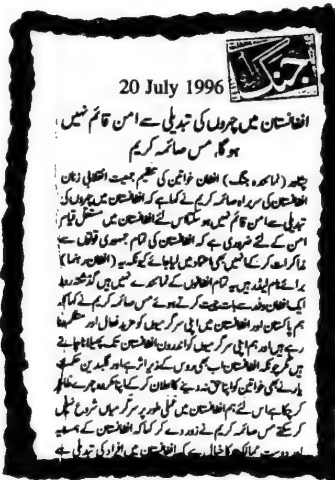 جنگ
20 July 1996
افغانستان میں چہروں کی تبدیلی سے امن قائم نہیں
ہو گا، مس صائمہ کریم
پشاور (نمائندہ جنگ) افغان خواتین کی تنظیم جمعیت انقلابی زنان
افغانستان کی سربراہ صائمہ کریم نے کہا ہے کہ افغانستان میں چہروں کی
تبدیلی سے امن قائم نہیں ہو سکتا اس لئے افغانستان میں مستقل قیام
امن کے لئے ضروری ہے کہ افغانستان کی تمام جمہوری قوتوں سے
مذاکرات کر کے انہیں بھی اعتماد میں لیا جائے کیونکہ یہ (افغان رہنما)
برائے نام لیڈر ہیں یہ تمام افغانوں کے نمائندے نہیں گذشتہ روز
ایک افغان وفد سے بات چیت کرتے ہوئے مس صائمہ کریم نے کہا کہ
ہم پاکستان اور افغانستان میں اپنی سرگرمیوں کو مزید فعال اور منظم بنا
رہے ہیں اور ہم اپنی سرگرمیوں کو اندرون افغانستان تک پھیلانا چاہتے
ہیں مگر چونکہ افغانستان اب بھی روس کے زیر اثر ہے اور گلبدین حکمت
یار نے بھی خواتین کو اپنا حق نہ دینے کا اعلان کر کے اپنا مکروہ چہرہ ظاہر
کر چکا ہے اس لئے ہم افغانستان میں عملی طور پر سرگرمیاں شروع نہیں
کر سکتے مس صائمہ کریم نے زور دے کر کہا کہ افغانستان کے ہمسایہ
اور دوست ممالک کا خیال ہے کہ افغانستان میں افراد کی تبدیلی سے